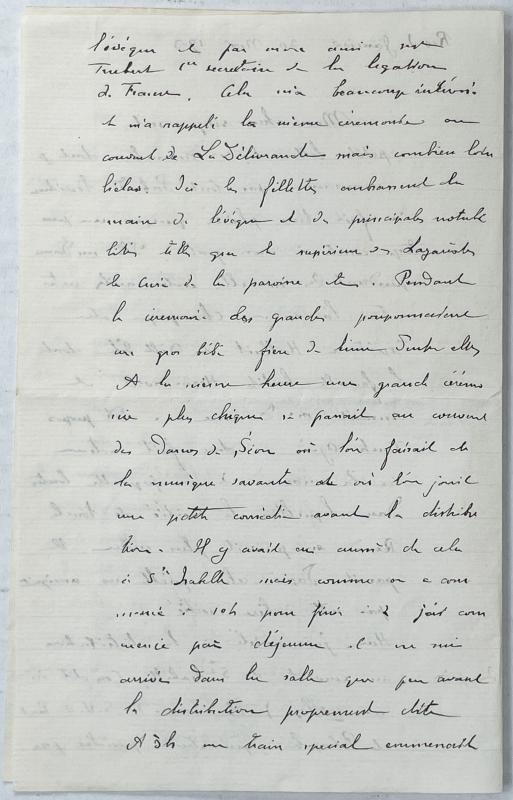 l'évêque et par notre ami
Frubert 1er secretaire de la legation
de France. Cela m'a beaucoup intéressé
et m'a rappelé la même cérémonie au
couvent de La Délivrande mais combien loin
hélas. Ici les fillettes embrassent la
main de l'évêque et des principales notabi
lités telles que le supérieur des Lazaristes
le curé de la paroisse etc. Pendant
la cérémonie des grandes pouponnaient
un gros bébé
A la même heure une grande cérémo
nie plus chique se passait au couvent
des Dames de Sion où l'on faisait de
la musique savante et où l'on jouait
une petite comédie avant la distribu
tion. Il y avait eu aussi de cela
à Ste Isabelle mais comme on a com
mencé à 10h pour finir à 2 j'ai com
mencé par déjeuner et ne suis
arrivé dans la salle que peu avant
la distribution proprement dite
A 3h un train special emmenait